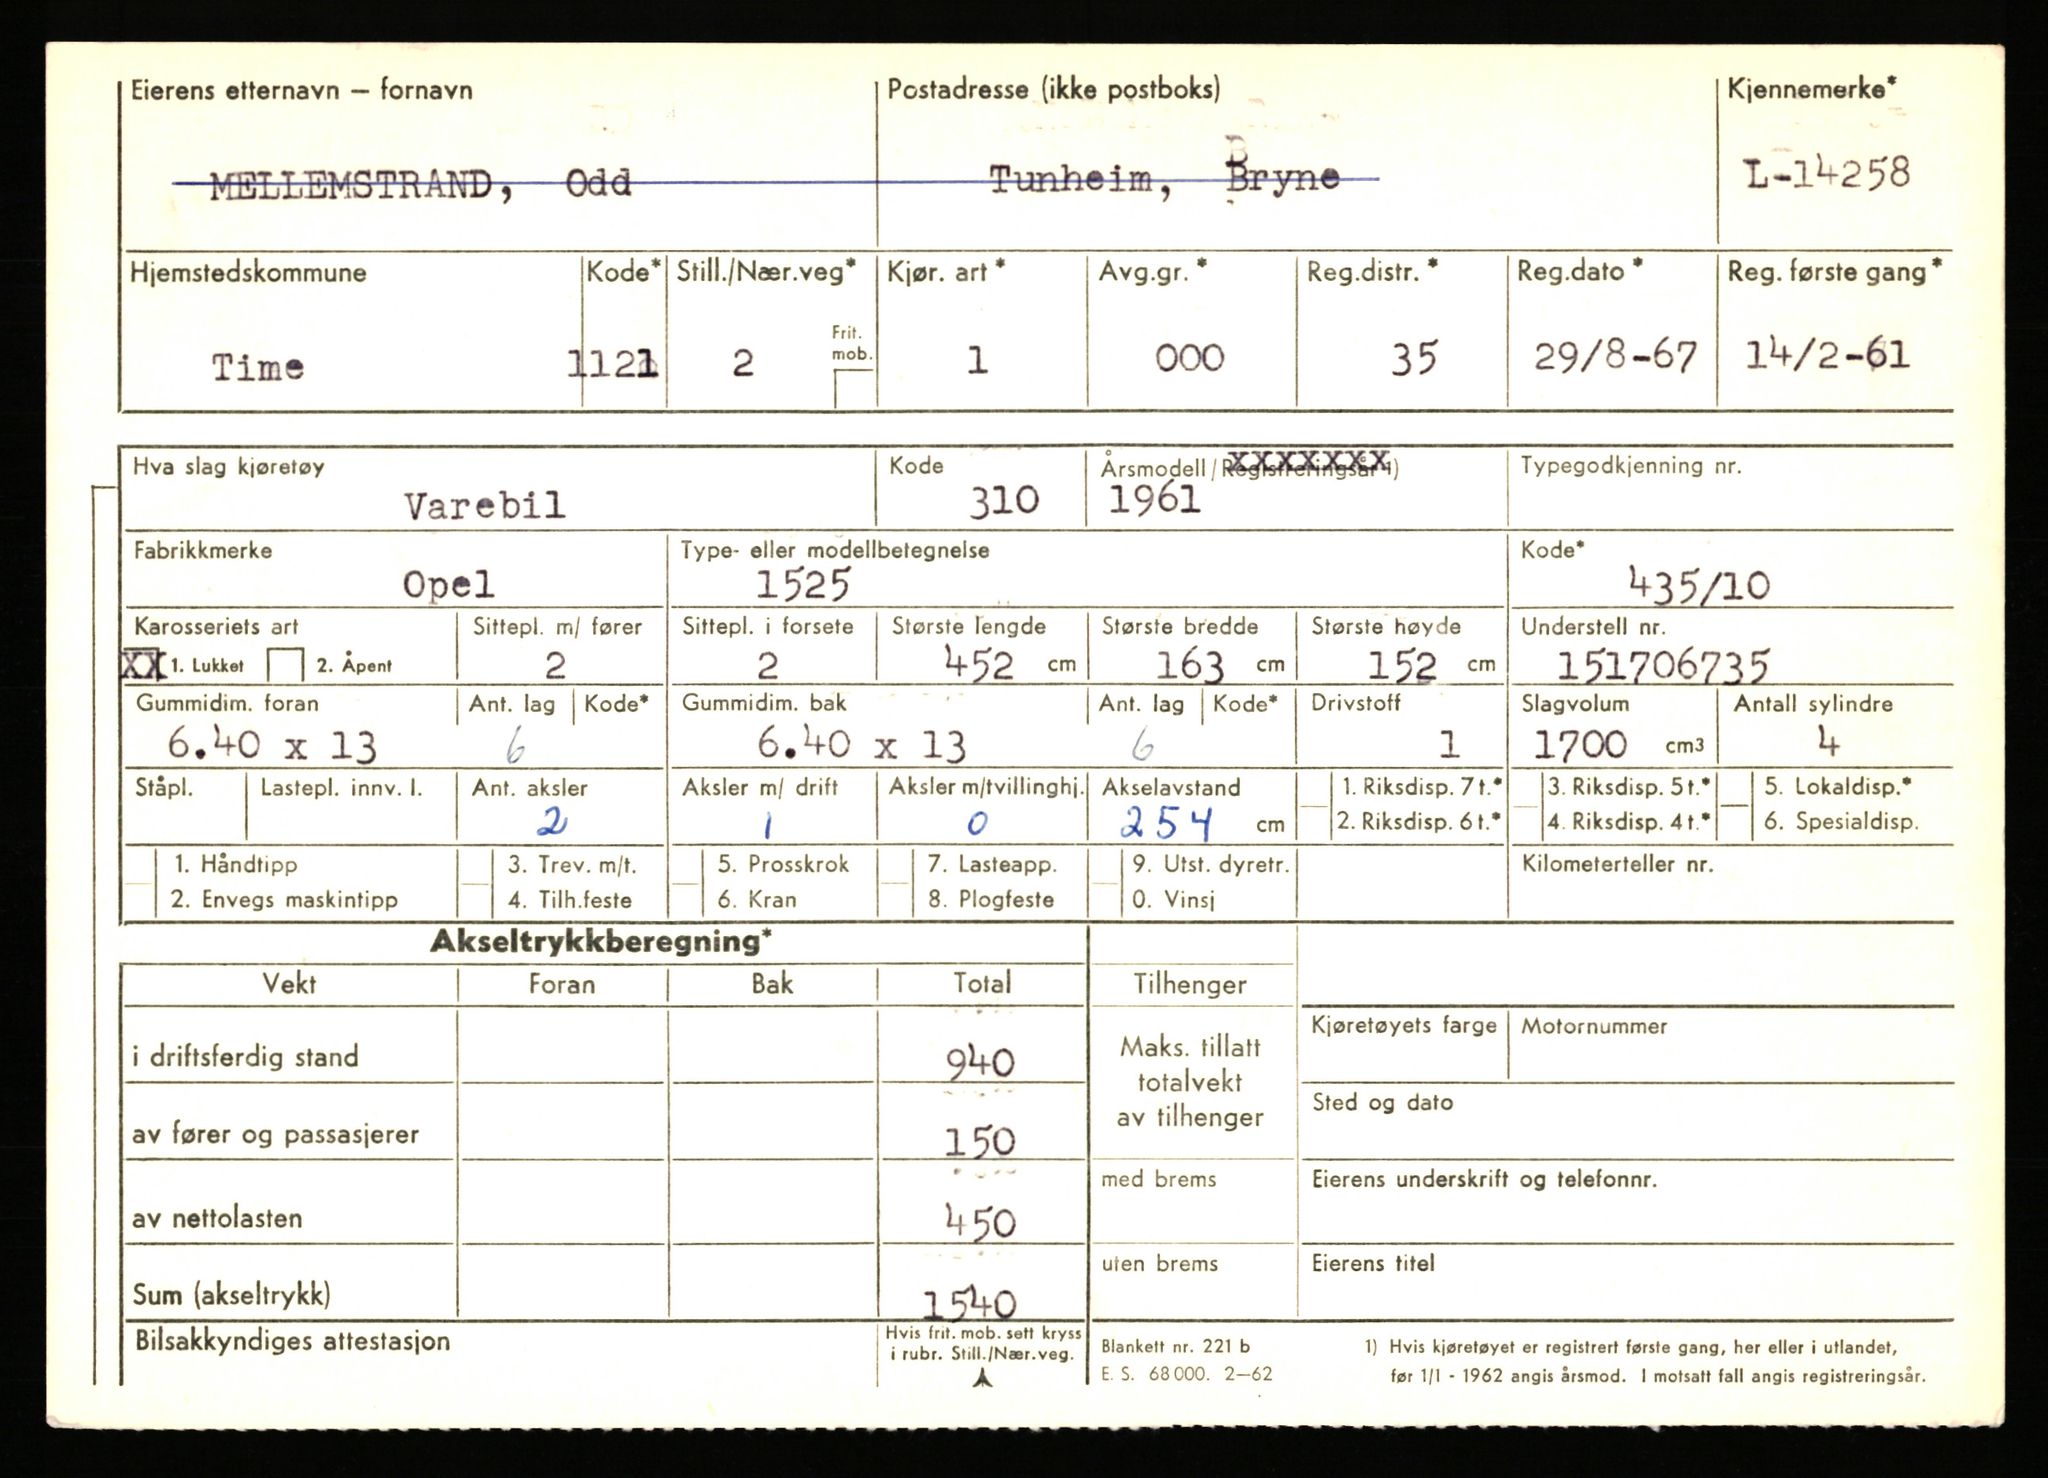 Eierens etternavn – fornavn Postadresse (ikke postboks) Kjennemerke*
MELLEMSTRAND, Odd Tunheim, Bryne L-14258
Hjemstedskommune Kode* Still./Nær.veg* Kjør. art* Avg.gr.* Reg.distr.* Reg.dato* Reg. første gang*
Frit. mob.
Time 1121 2 1 000 35 29/8-67 14/2-61
Hva slag kjøretøy Kode Årsmodell/Registreringsår 1) Typegodkjenning nr.
Varebil 310 1961
Fabrikkmerke Type- eller modellbetegnelse Kode*
Opel 1525 435/10
Karosseriets art Sittepl. m/ fører Sittepl. i forsete Største lengde Største bredde Største høyde Understell nr.
XX 1. Lukket 2. Åpent 2 2 452 cm 163 cm 152 cm 151706735
Gummidim. foran Ant. lag Kode* Gummidim. bak Ant. lag Kode* Drivstoff Slagvolum Antall sylindre
6.40 x 13 6 6.40 x 13 6 1 1700 cm3 4
Ståpl. Lastepl. innv. l. Ant. aksler Aksler m/ drift Aksler m/tvillinghj. Akselavstand 1. Riksdisp. 7 t.* 3. Riksdisp. 5 t.* 5. Lokaldisp.*
2 1 0 254 cm 2. Riksdisp. 6 t.* 4. Riksdisp. 4 t.* 6. Spesialdisp.
1. Håndtipp 3. Trev. m/t. 5. Prosskrok 7. Lasteapp. 9. Utst. dyretr. Kilometerteller nr.
2. Envegs maskintipp 4. Tilh.feste 6. Kran 8. Plogfeste 0. Vinsj
Akseltrykkberegning*
Vekt Foran Bak Total Tilhenger
Kjøretøyets farge Motornummer
i driftsferdig stand 940 Maks. tillatt
totalvekt
av tilhenger
Sted og dato
av fører og passasjerer 150
med brems Eierens underskrift og telefonnr.
av nettolasten 450
uten brems Eierens titel
Sum (akseltrykk) 1540
Bilsakkyndiges attestasjon Hvis frit. mob. sett kryss
i rubr. Still./Nær.veg.
Blankett nr. 221 b 1) Hvis kjøretøyet er registrert første gang, her eller i utlandet,
E. S. 68 000. 2–62 før 1/1 - 1962 angis årsmod. I motsatt fall angis registreringsår.